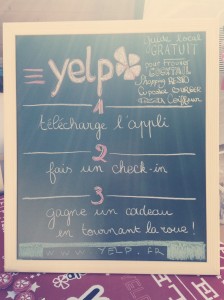 yelp
Guide local
GRATUIT
pour trouver
Shopping RESTO
Coiffeur
1
télécharge l'appli
2
fais un check-in
3
gagne un cadeau
en tournant la roue !
WWW.YELP.FR